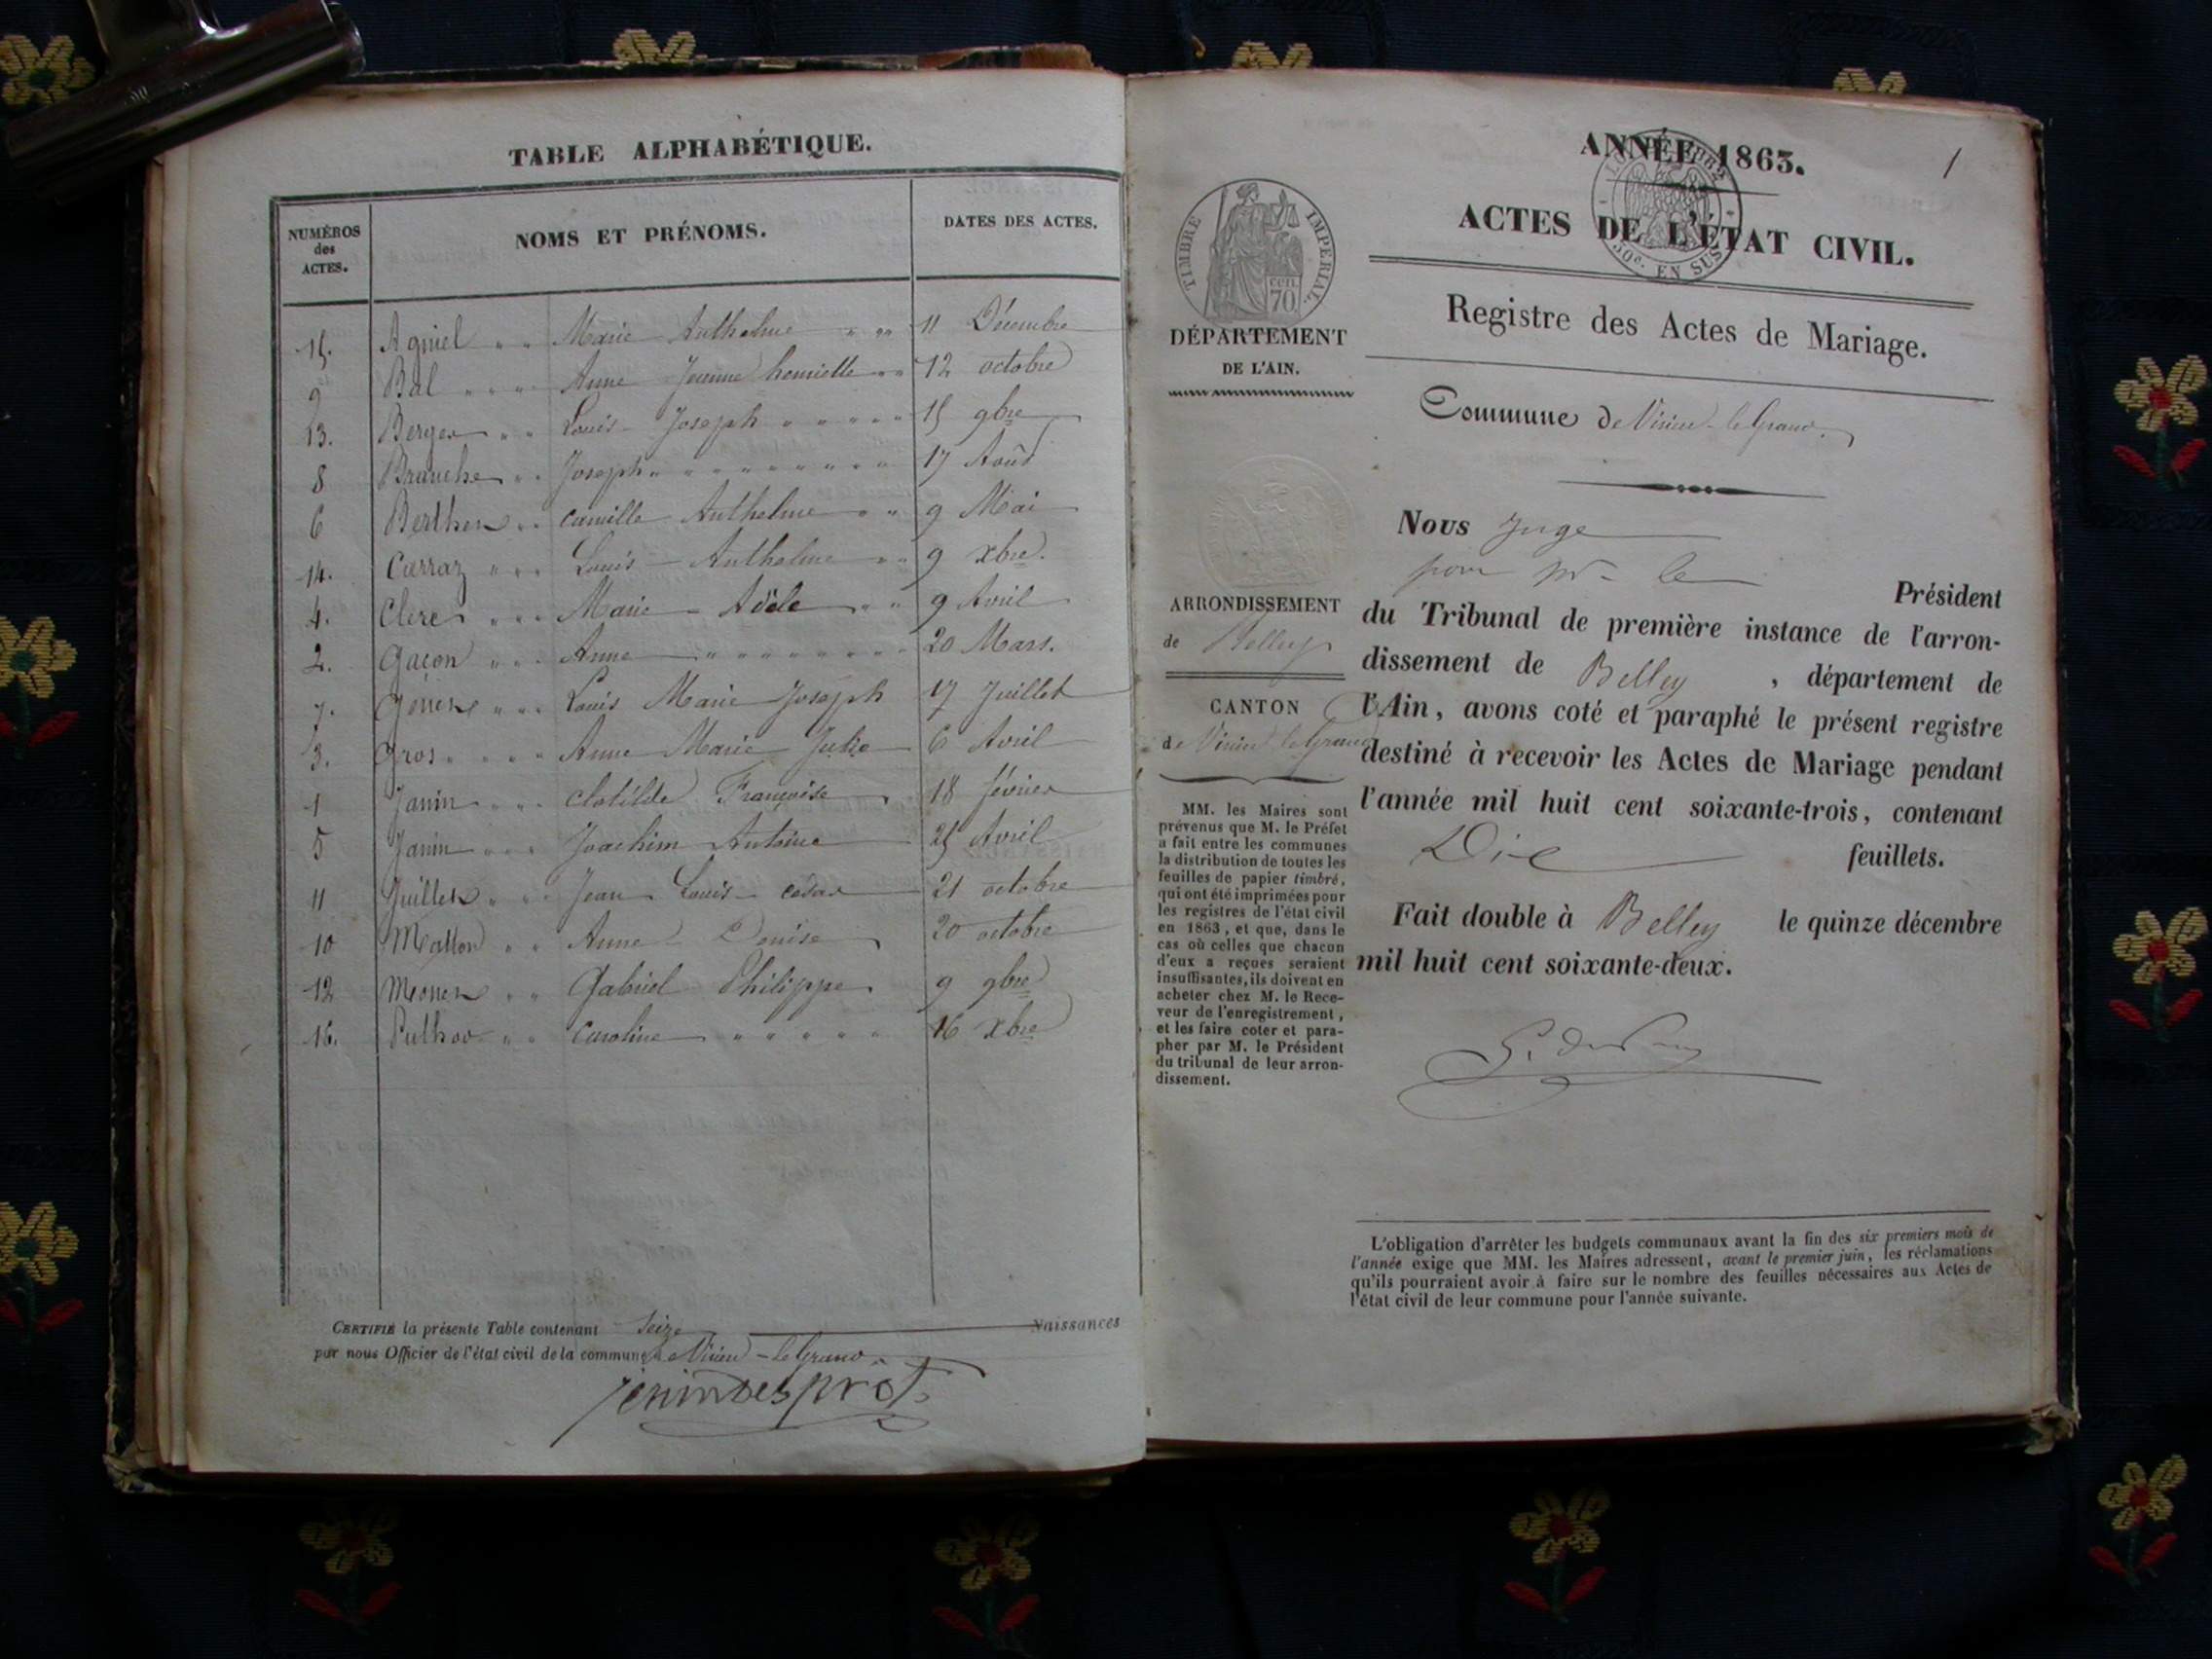 TABLE ALPHABÉTIQUE.
NUMÉROS des ACTES. NOMS ET PRÉNOMS. DATES DES ACTES.
15. Agniel " " Marie Anthelme " " " 11 Décembre
9 Bal " " " " Anne Jeanne henriette " " 12 octobre
13. Berger " " Louis Joseph " " " " " 15 9bre
8 Joseph " " " " " " " " " 17 Août
6 Berthet " " camille Anthelme " " 9 Mai
14. Carraz " " " Louis Anthelme " " 9 xbre.
4. Clerc " " " Marie Adèle " " 9 Avril
2. Gaçon " " " Anne " " " " " " " " 20 Mars.
7. " " " Louis Marie Joseph 17 Juillet
3. Gros " " " " Anne Marie Julie 6 Avril
1 Janin " " " Clotilde Françoise 18 février
5 Janin " " " Joachim Antoine 25 Avril
11 Juillet " " " Jean Louis César 21 octobre
10 " " Anne Denise 20 octobre
12 " " Gabriel Philippe 9 9bre
16. " " Caroline " " " " " 16 xbre
CERTIFIÉ la présente Table contenant Seize Naissances
par nous Officier de l'état civil de la commune de Virieu-le-Grand.
1
ANNÉE 1863.
TIMBRE IMPERIAL.
CEN. 70
50c. EN SUS
ACTES DE L'ÉTAT CIVIL.
Registre des Actes de Mariage.
Commune de Virieu-le-Grand.
DÉPARTEMENT
DE L'AIN.
ARRONDISSEMENT
de Belley
CANTON
de Virieu le Grand
MM. les Maires sont
prévenus que M. le Préfet
a fait entre les communes
la distribution de toutes les
feuilles de papier timbré,
qui ont été imprimées pour
les registres de l'état civil
en 1863, et que, dans le
cas où celles que chacun
d'eux a reçues seraient
insuffisantes, ils doivent en
acheter chez M. le Rece-
veur de l'enregistrement,
et les faire coter et para-
pher par M. le Président
du tribunal de leur arron-
dissement.
Nous Juge
pour Mr le
Président
du Tribunal de première instance de l'arron-
dissement de Belley , département de
l'Ain, avons coté et paraphé le présent registre
destiné à recevoir les Actes de Mariage pendant
l'année mil huit cent soixante-trois, contenant
Dix feuillets.
Fait double à Belley le quinze décembre
mil huit cent soixante-deux.
L'obligation d'arrêter les budgets communaux avant la fin des six premiers mois de
l'année exige que MM. les Maires adressent, avant le premier juin, les réclamations
qu'ils pourraient avoir à faire sur le nombre des feuilles nécessaires aux Actes de
l'état civil de leur commune pour l'année suivante.